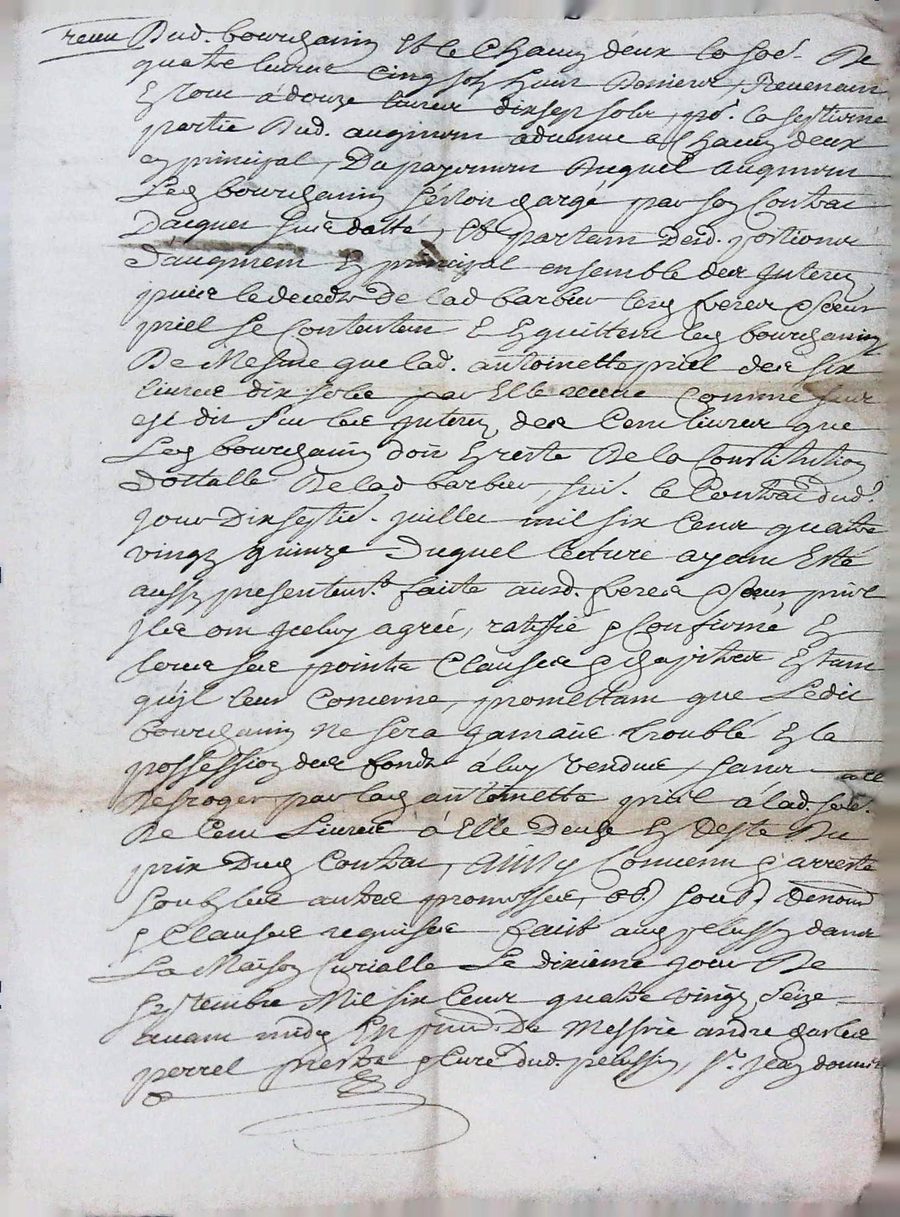 receu Dud. bourgeain Et le Chacun deux la so.e De
quatre livres cinq sols huit Deniers, Revenant
Le tout à douze livres dix sept sols, po.r la septieme
partie Dud. augment advenue a Chacun deux
en principal, Du payement Duquel augment
Led bourgeain seroit chargé par son Contrat
Dacquet sus datté, Et partant Desd. portions
daugment En principal ensemble des Interets
puis le deceds de lad barbier lesd freres & soeur
priel se Contentent Et En quittent led bourgeain
De Mesme que lad. antoinette priel des six
livres dix sols par Elle receue Comme sus
est dit Sur les Interets des Cent livres que
Led bourgeain doit En reste De la Constitution
dottalle De lad barbier, suiv. le Contrat dud.
jour Dix septie. juillet mil six Cent quatre
vingt quinze Duquel lecture ayant Esté
aussy presentem.t faite ausd. freres & soeur priel
Ils ont Iceluy agréé, ratiffié & Confirmé En
tous ses points Clauses & Chapitres Estant
quil leur Concerne, promettant que Ledit
bourgeain Ne sera Jamais troublé En la
possession des fonds à luy vendus, sans
Desroger par lad antoinette priel à lad. so.e
De Cent Livres à Elle Deuze En Reste Du
prix Dud Contrat, Ainsy Convenu & arresté
soubz les autres promesses,
& Clauses requises fait aud pelussin dans
La Maison Curialle Le dixieme jour De
septembre Mil six Cent quatre vingt Seize
avant midy En pnce. De Messire andre
perrel prestre & Curé dud. pelussin, Sr. Jean